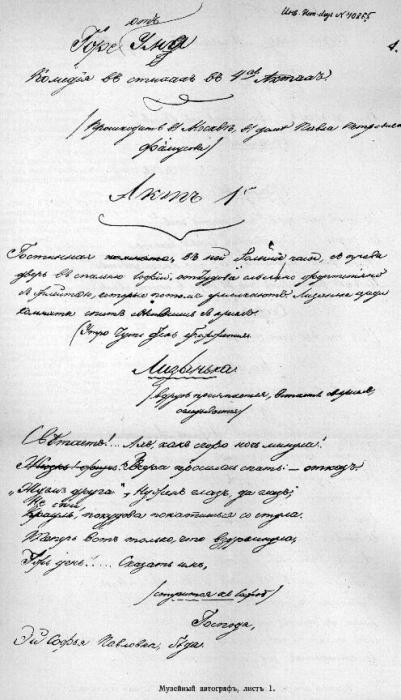 отъ
Горе Ума
1.
Комедія въ стихахъ въ 4хъ Актахъ.
(Происходитъ въ Москвѣ, въ домѣ Павла
Фамусова)
Актъ 1й
Гостинная комната, въ ней большіе часы, съ права
дверь въ спальню Софіи, откудова слышно фортепіяно
съ флейтою, которыя потомъ умолкаютъ. Лизанька среди
комнаты спитъ
(Утро чуть день брезжится.
Лизанька
(вдругъ просыпается, встаетъ съ креселъ,
оглядывается)
Свѣтаетъ!... Ахъ, какъ скоро ночь минула!
Вчера просилась спать: – отказъ.
„Ждемъ друга“, Нуженъ глазъ, да глазъ;
Не спи,
покудова покатишься со стула.
Теперь вотъ только, что вздремнула,
день!.... Сказать имъ,
(стучится къ Софіѣ)
Господа,
Эй Софья Павловна, бѣда.
Музейный автографъ, листъ 1.